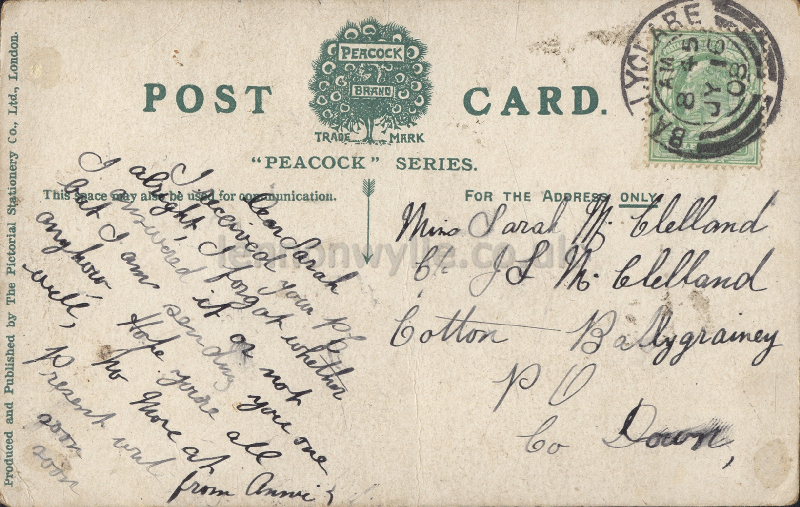 PEACOCK
BRAND
TRADE MARK
POST CARD.
"PEACOCK" SERIES.
This space may also be used for communication.
FOR THE ADDRESS ONLY
Produced and Published by The Pictorial Stationery Co., Ltd., London.
BALLYCLARE
8 45 AM
JY 16
08
Dear Sarah
I received your
alright, I forgot whether
I answered it or not
but I am sending you one
anyhow Hope you're all
well, no more at
Present
soon
soon
from Annie
Miss Sarah Mc Clelland
C/o J S Mc Clelland
Cotton Ballygrainey
P O
Co Down,
lennonwylie.co.uk